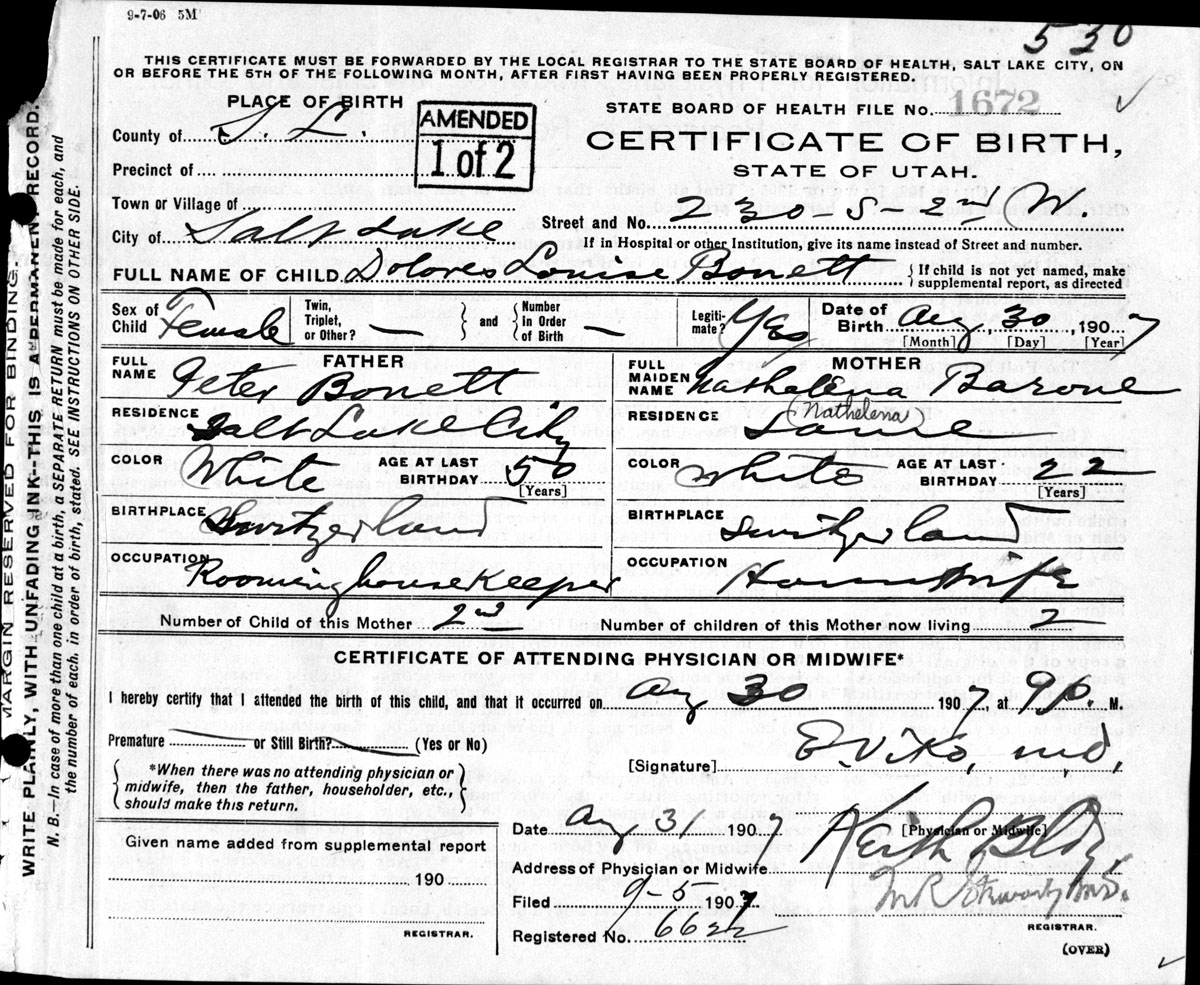 9-7-06 5M
530
THIS CERTIFICATE MUST BE FORWARDED BY THE LOCAL REGISTRAR TO THE STATE BOARD OF HEALTH, SALT LAKE CITY, ON
OR BEFORE THE 5TH OF THE FOLLOWING MONTH, AFTER FIRST HAVING BEEN PROPERLY REGISTERED.
PLACE OF BIRTH
AMENDED
1 of 2
STATE BOARD OF HEALTH FILE No. 1672
County of S. L.
CERTIFICATE OF BIRTH,
Precinct of
STATE OF UTAH.
Town or Village of
Street and No. 230-S-2nd W.
City of Salt Lake
If in Hospital or other Institution, give its name instead of Street and number.
FULL NAME OF CHILD Dolores Louise Bonett
If child is not yet named, make
supplemental report, as directed
Sex of Child Female
Twin, Triplet, or Other? —
and
Number In Order of Birth —
Legiti-mate? Yes
Date of Birth Aug, 30, 1907
[Month] [Day] [Year]
FATHER
FULL NAME Peter Bonett
RESIDENCE Salt Lake City
COLOR White
AGE AT LAST BIRTHDAY 50
[Years]
BIRTHPLACE Switzerland
OCCUPATION Rooming house Keeper
MOTHER
FULL MAIDEN NAME Nathalena Barone
(Nathelena)
RESIDENCE Same
COLOR White
AGE AT LAST BIRTHDAY 22
[Years]
BIRTHPLACE Switzerland
OCCUPATION Housewife
Number of Child of this Mother 2nd
Number of children of this Mother now living 2
CERTIFICATE OF ATTENDING PHYSICIAN OR MIDWIFE*
I hereby certify that I attended the birth of this child, and that it occurred on Aug 30 1907, at 9 P. M.
Premature or Still Birth? (Yes or No)
[Signature] E. Viko, M.D.
*When there was no attending physician or
midwife, then the father, householder, etc.,
should make this return.
[Physician or Midwife]
Date Aug 31 1907
Given name added from supplemental report
190
REGISTRAR.
Address of Physician or Midwife Keith Bldg
Filed 9-5 1907
Registered No. 6622
REGISTRAR.
(OVER)
MARGIN RESERVED FOR BINDING.
WRITE PLAINLY, WITH UNFADING INK--THIS IS A PERMANENT RECORD.
N. B.—In case of more than one child at a birth, a SEPARATE RETURN must be made for each, and
the number of each, in order of birth, stated. SEE INSTRUCTIONS ON OTHER SIDE.